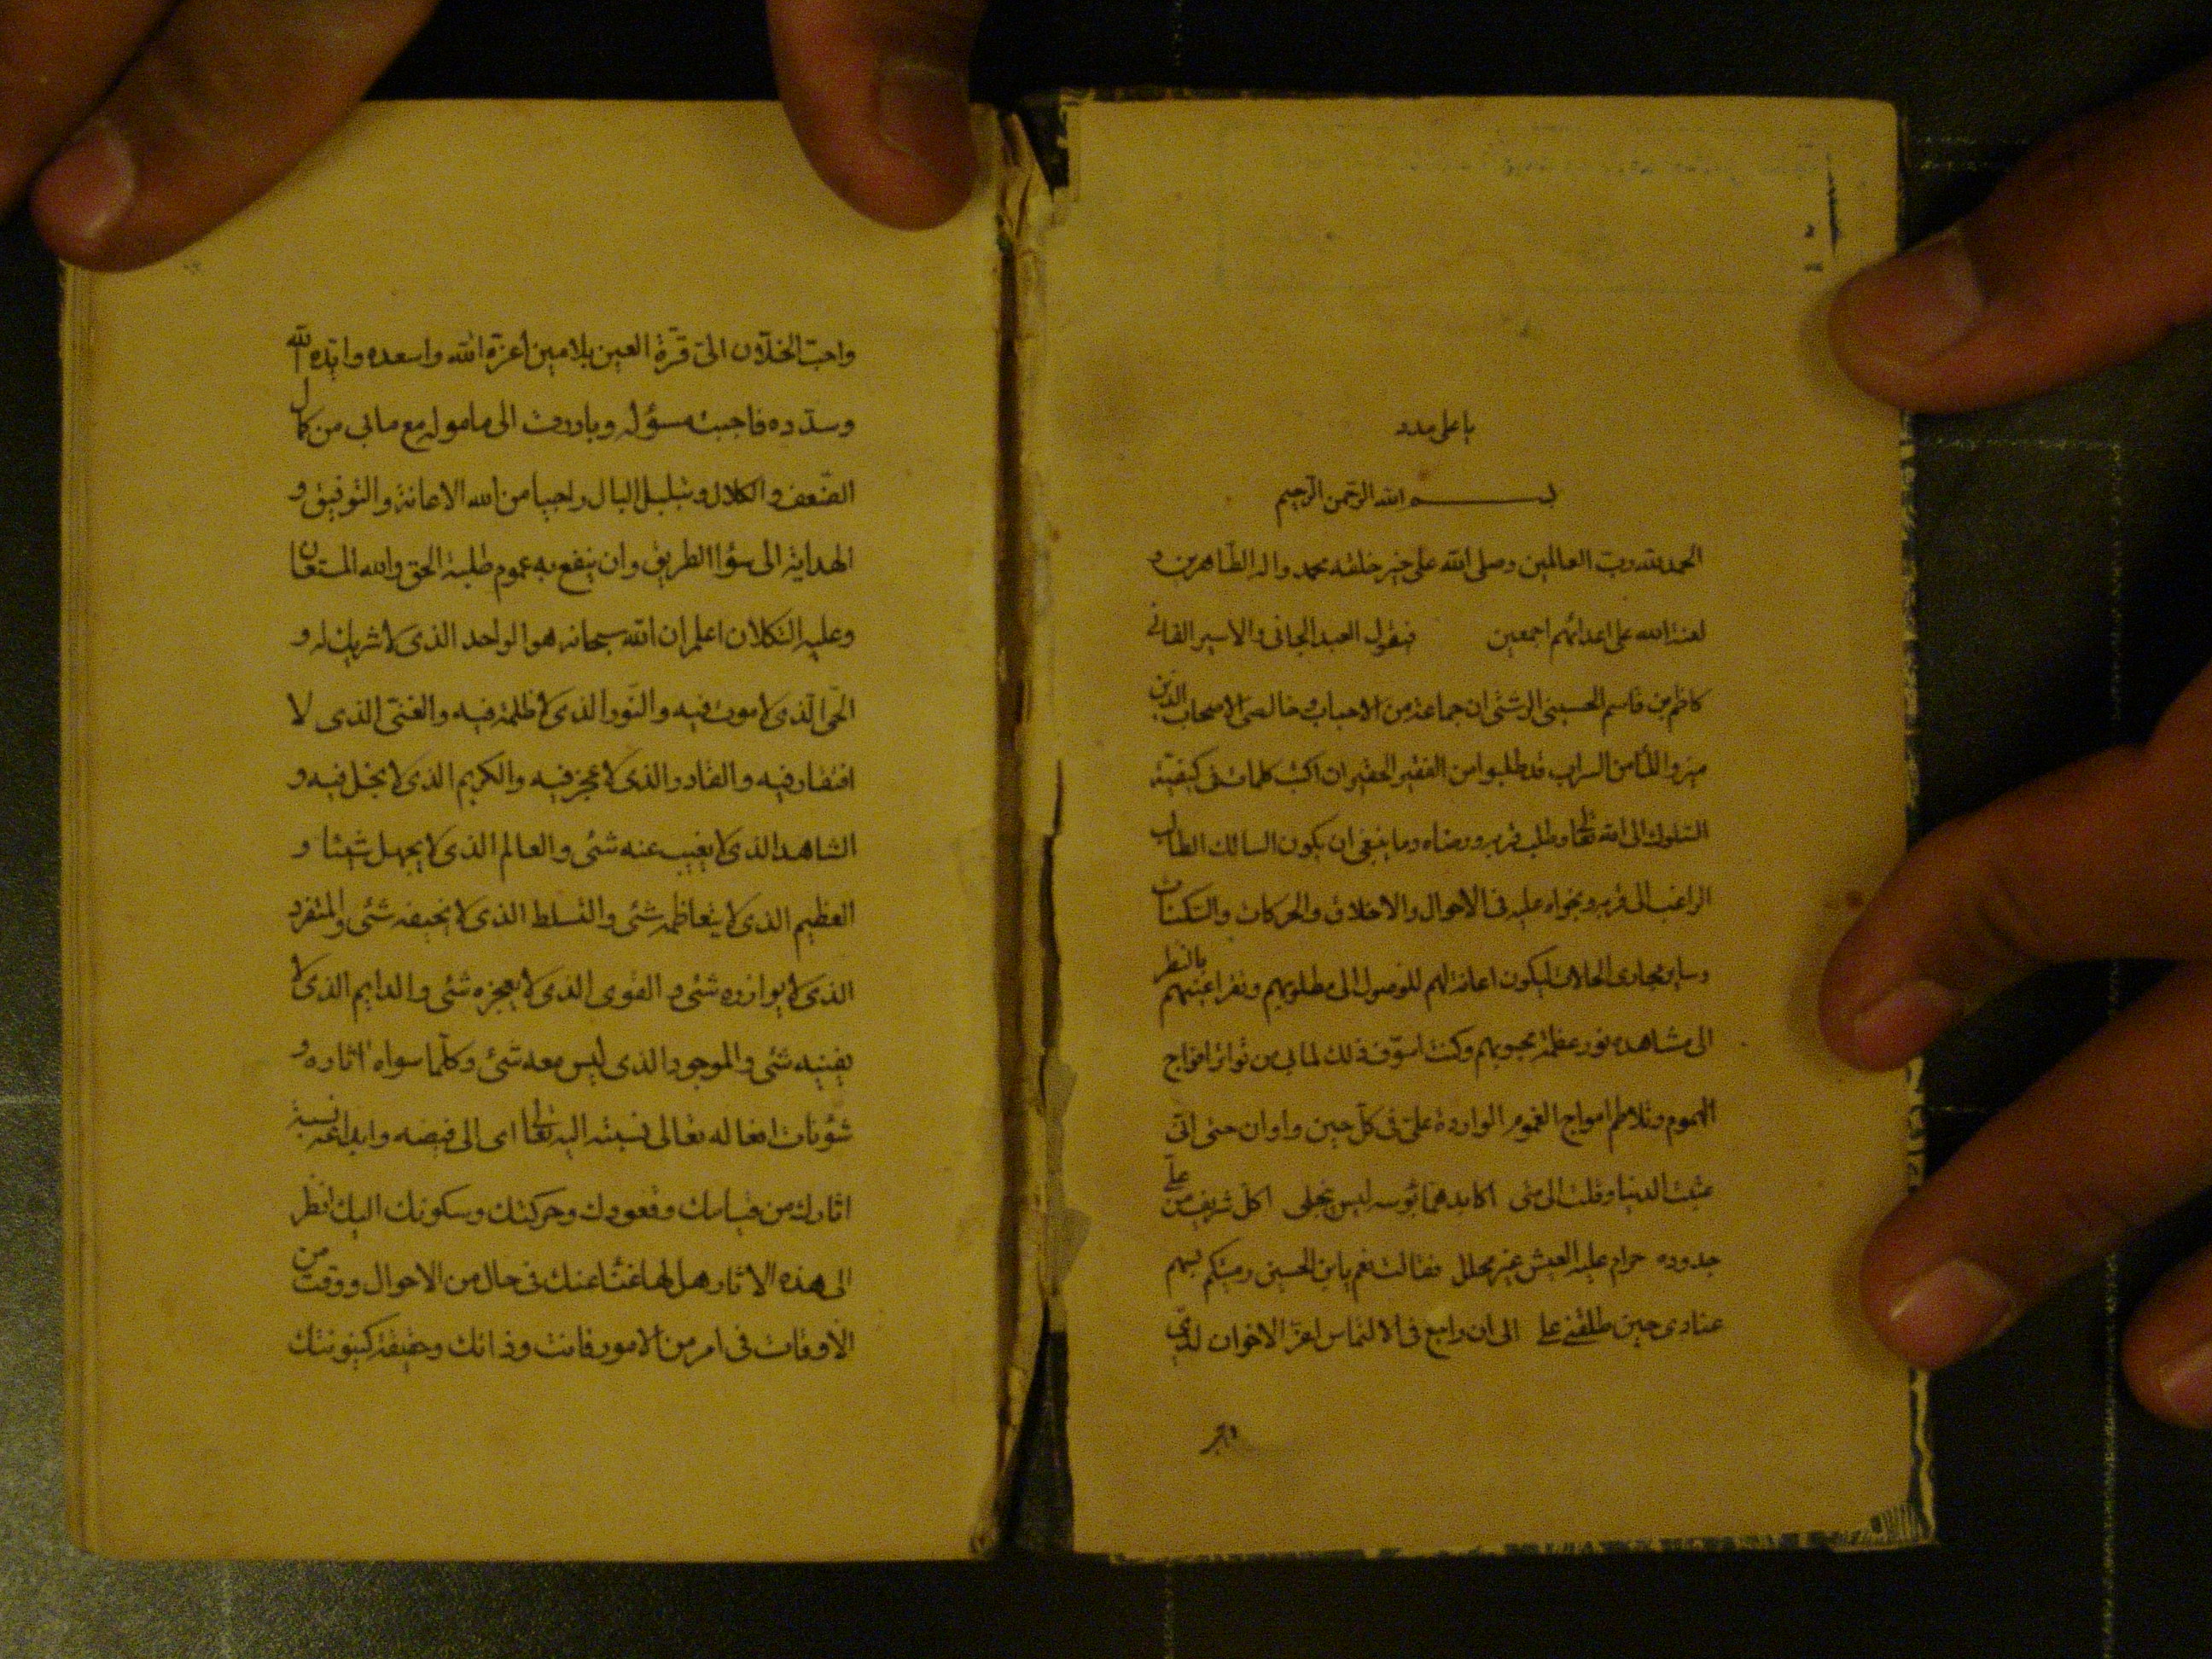 يا علي مدد
بسم الله الرحمن الرحيم
الحمد لله رب العالمين وصلى الله على خير خلقه محمد واله الطاهرين و
لعنة الله على اعدائهم اجمعين فيقول العبد الجاني والاسير الفاني
كاظم بن قاسم الحسيني الرشتي ان جماعة من الاحباب وخالصي الاصحاب الذين
ميزوا الماء من السراب قد طلبوا من الفقير الحقير ان اكتب كلمات في كيفية
السلوك الى الله تعالى وطلب قربه ورضاه وما ينبغي ان يكون السالك الطالب
الراغب الى قربه ونجواه عليه في الاحوال والاخلاق والحركات والسكنات
وساير مجاري الحالات ليكون اعانة لهم للوصول الى مطلوبهم وتقر اعينهم بالنظر
الى مشاهده نور عظمة محبوبهم وكنت اسوف ذلك لما بي من تواتر افواج
الهموم وتلاطم امواج الغموم الواردة علي في كل حين واوان حتى اني
عتبت الدنيا وقلت الى متى اكابد هما بؤسه ليس ينجلي اكل شريف من علي
جدوده حرام عليه العيش غير محلل فقالت نعم يابن الحسين رميتكم بسهم
عنادي حين طلقني علي الى ان راجع في الالتماس اعز الاخوان لدي
واحب الخلان الي قرة العين بلامين اعزه الله واسعده وايده الله
وسدده فاجبت مسؤله وبادرت الى ماموله مع مابي من كمال
الضعف والكلال وتبلبل البال راجيا من الله الاعانة والتوفيق و
الهداية الى سؤا الطريق وان ينفع به عموم طلبة الحق والله المستعان
وعليه التكلان اعلم ان الله سبحانه هو الواحد الذي لا شريك له و
الحي الذي لا موت فيه والنور الذي لا ظلمة فيه والغني الذي لا
افتقار فيه والقادر الذي لا عجز فيه والكريم الذي لا بخل فيه و
الشاهد الذي لا يغيب عنه شئ والعالم الذي لا يجهل شيئا و
العظيم الذي لا يتعاظمه شئ والتسلط الذي لا يخيفه شئ والمتفرد
الذي لا يوازره شئ و القوي الذي لا يعجزه شئ والدايم الذي لا
يفنيه شئ والموجود الذي ليس معه شئ وكلما سواه اثاره و
شؤنات افعاله تعالى نسبته اليه تعالى اى الى فيضه وابداعه نسبة
اثارك من قيامك وقعودك وحركتك وسكونك اليك انظر
الى هذه الاثار هل لها غنا عنك في حال من الاحوال ووقت من
الاوقات في امر من الامور فانت وذاتك وحقيقة كينونتك